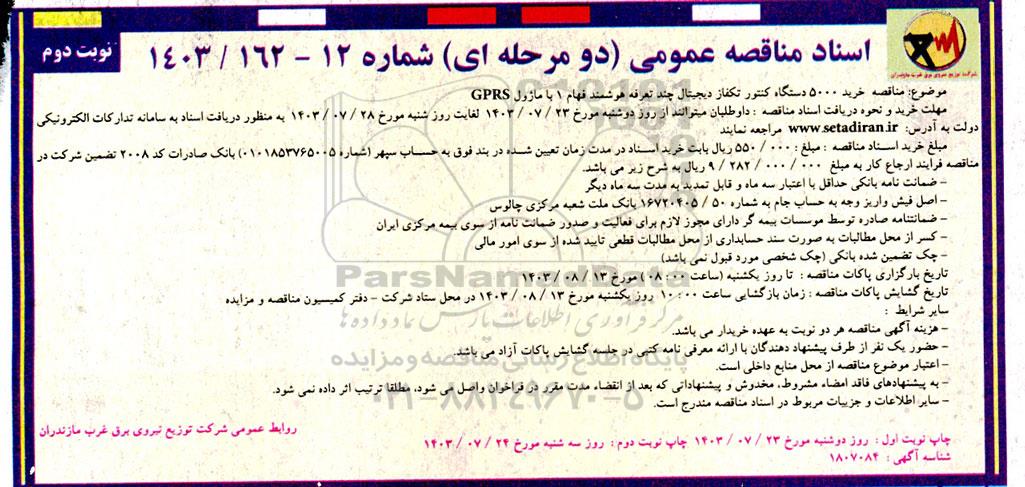 اسناد مناقصه عمومی (دو مرحله ای) شماره ۱۲ - ۱۶۲ / ۱۴۰۳
نوبت دوم
شرکت توزیع نیروی برق غرب مازندران
موضوع: مناقصه خرید ۵۰۰۰ دستگاه کنتور تکفاز دیجیتال چند تعرفه هوشمند فهام ۱ با ماژول GPRS
مهلت خرید و نحوه دریافت اسناد مناقصه : داوطلبان میتوانند از روز دوشنبه مورخ ۲۳ / ۰۷ / ۱۴۰۳ لغایت روز شنبه مورخ ۲۸ / ۰۷ / ۱۴۰۳ به منظور دریافت اسناد به سامانه تدارکات الکترونیکی
دولت به آدرس: www.setadiran.ir مراجعه نمایند
مبلغ خرید اسناد مناقصه : مبلغ : ۰۰۰ / ۵۵۰ ریال بابت خرید اسناد در مدت زمان تعیین شده در بند فوق به حساب سپهر (شماره ۰۱۰۱۸۵۳۷۶۵۰۰۵) بانک صادرات کد ۲۰۰۸ تضمین شرکت در
مناقصه فرایند ارجاع کار به مبلغ ۰۰۰ / ۰۰۰ / ۲۸۲ / ۹ ریال به شرح زیر می باشد.
- ضمانت نامه بانکی حداقل با اعتبار سه ماه و قابل تمدید به مدت سه ماه دیگر
- اصل فیش واریز وجه به حساب جام به شماره ۵۰ / ۱۶۷۲۰۴۰۵ بانک ملت شعبه مرکزی چالوس
- ضمانتنامه صادره توسط موسسات بیمه گر دارای مجوز لازم برای فعالیت و صدور ضمانت نامه از سوی بیمه مرکزی ایران
- کسر از محل مطالبات به صورت سند حسابداری از محل مطالبات قطعی تایید شده از سوی امور مالی
- چک تضمین شده بانکی (چک شخصی مورد قبول نمی باشد)
تاریخ بارگزاری پاکات مناقصه : تا روز یکشنبه (ساعت ۰۰ : ۰۸) مورخ ۱۳ / ۰۸ / ۱۴۰۳
تاریخ گشایش پاکات مناقصه : زمان بازگشایی ساعت ۰۰ : ۱۰ روز یکشنبه مورخ ۱۳ / ۰۸ / ۱۴۰۳ در محل ستاد شرکت - دفتر کمیسیون مناقصه و مزایده
سایر شرایط :
- هزینه آگهی مناقصه هر دو نوبت به عهده خریدار می باشد.
- حضور یک نفر از طرف پیشنهاد دهندگان با ارائه معرفی نامه کتبی در جلسه گشایش پاکات آزاد می باشد.
- اعتبار موضوع مناقصه از محل منابع داخلی است.
- به پیشنهادهای فاقد امضاء مشروط، مخدوش و پیشنهاداتی که بعد از انقضاء مدت مقرر در فراخوان واصل می شود، مطلقا ترتیب اثر داده نمی شود.
- سایر اطلاعات و جزییات مربوط در اسناد مناقصه مندرج است.
روابط عمومی شرکت توزیع نیروی برق غرب مازندران
چاپ نوبت اول : روز دوشنبه مورخ ۲۳ / ۰۷ / ۱۴۰۳ چاپ نوبت دوم : روز سه شنبه مورخ ۲۴ / ۰۷ / ۱۴۰۳
شناسه آگهی : ۱۸۰۷۰۸۴
ParsNamadData
مرکز فرآوری اطلاعات پارس نماد داده ها
پایگاه اطلاع رسانی مناقصه و مزایده
۰۲۱-۸۸۳۴۹۶۷۰-۵